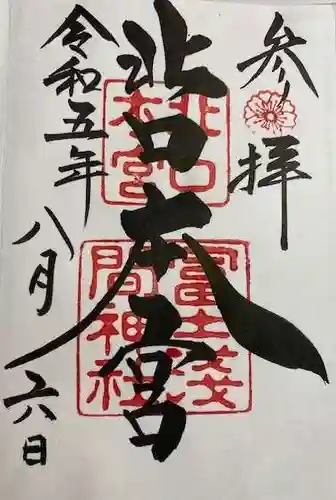 参拝
北口本宮
令和五年
八月六日
北口
本宮
冨士浅
間神社